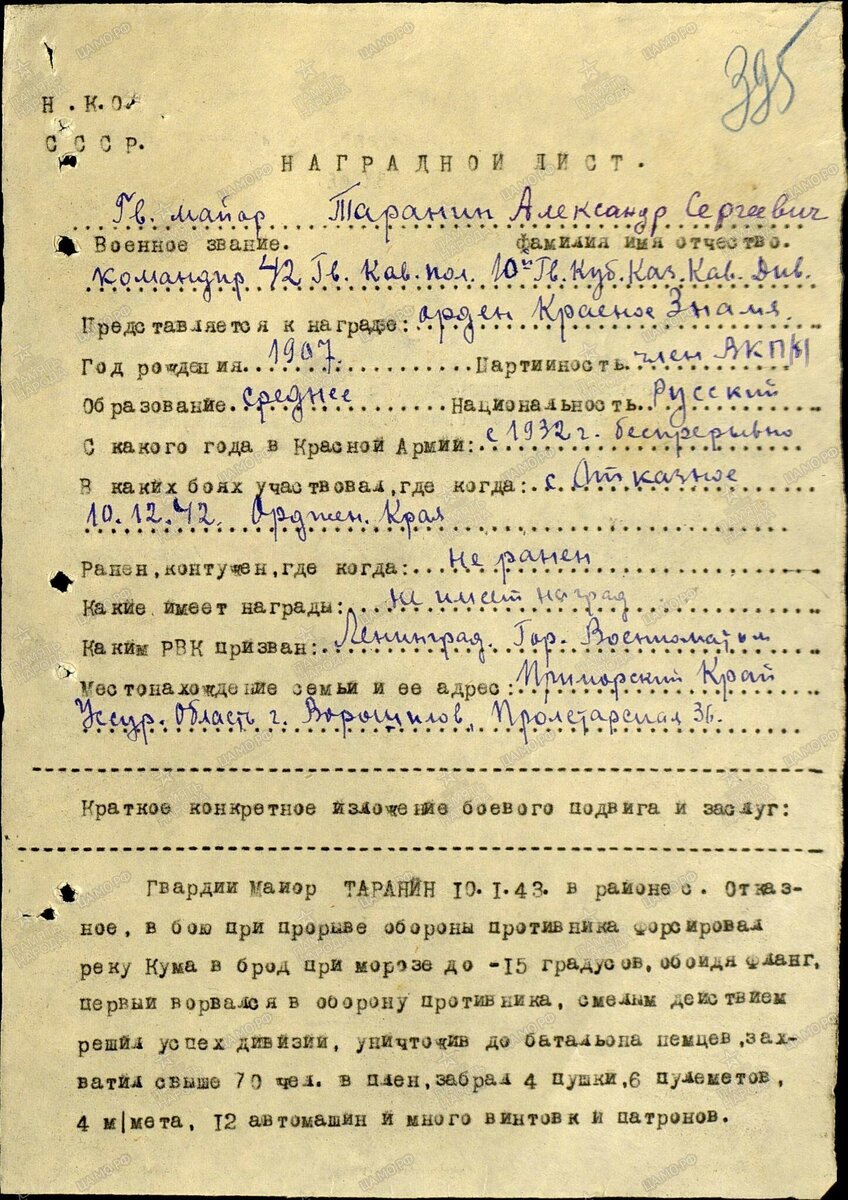 395
Н.К.О.
С С С Р.
НАГРАДНОЙ ЛИСТ.
Гв. майор Таранин Александр Сергеевич
Военное звание. фамилия имя отчество.
командир 42 Гв. Кав. пол. 10й Гв. Куб. Каз. Кав. Див.
Представляется к награде: орден Красное Знамя.
Год рождения. 1907. Партийность. член ВКП/б/
Образование. среднее Национальность. Русский
С какого года в Красной Армии: с 1932 г. беспрерывно
В каких боях участвовал, где когда: с. Отказное
10.12.42. Орджен. Края
Ранен, контужен, где когда: не ранен
Какие имеет награды: не имеет наград
Каким РВК призван: Ленинград. Гор. Военкоматом
Местонахождение семьи и ее адрес: Приморский Край
Уссур. Область г. Ворошилов, Пролетарская 36.
Краткое конкретное изложение боевого подвига и заслуг:
Гвардии Майор ТАРАНИН 10.1.43. в районе с. Отказ-
ное, в бою при прорыве обороны противника форсировал
реку Кума в брод при морозе до -15 градусов, обойдя фланг,
первый ворвался в оборону противника, смелым действием
решил успех дивизии, уничтожив до батальона немцев, зах-
ватил свыше 70 чел. в плен, забрал 4 пушки, 6 пулеметов,
4 м/мета, 12 автомашин и много винтовк и патронов.